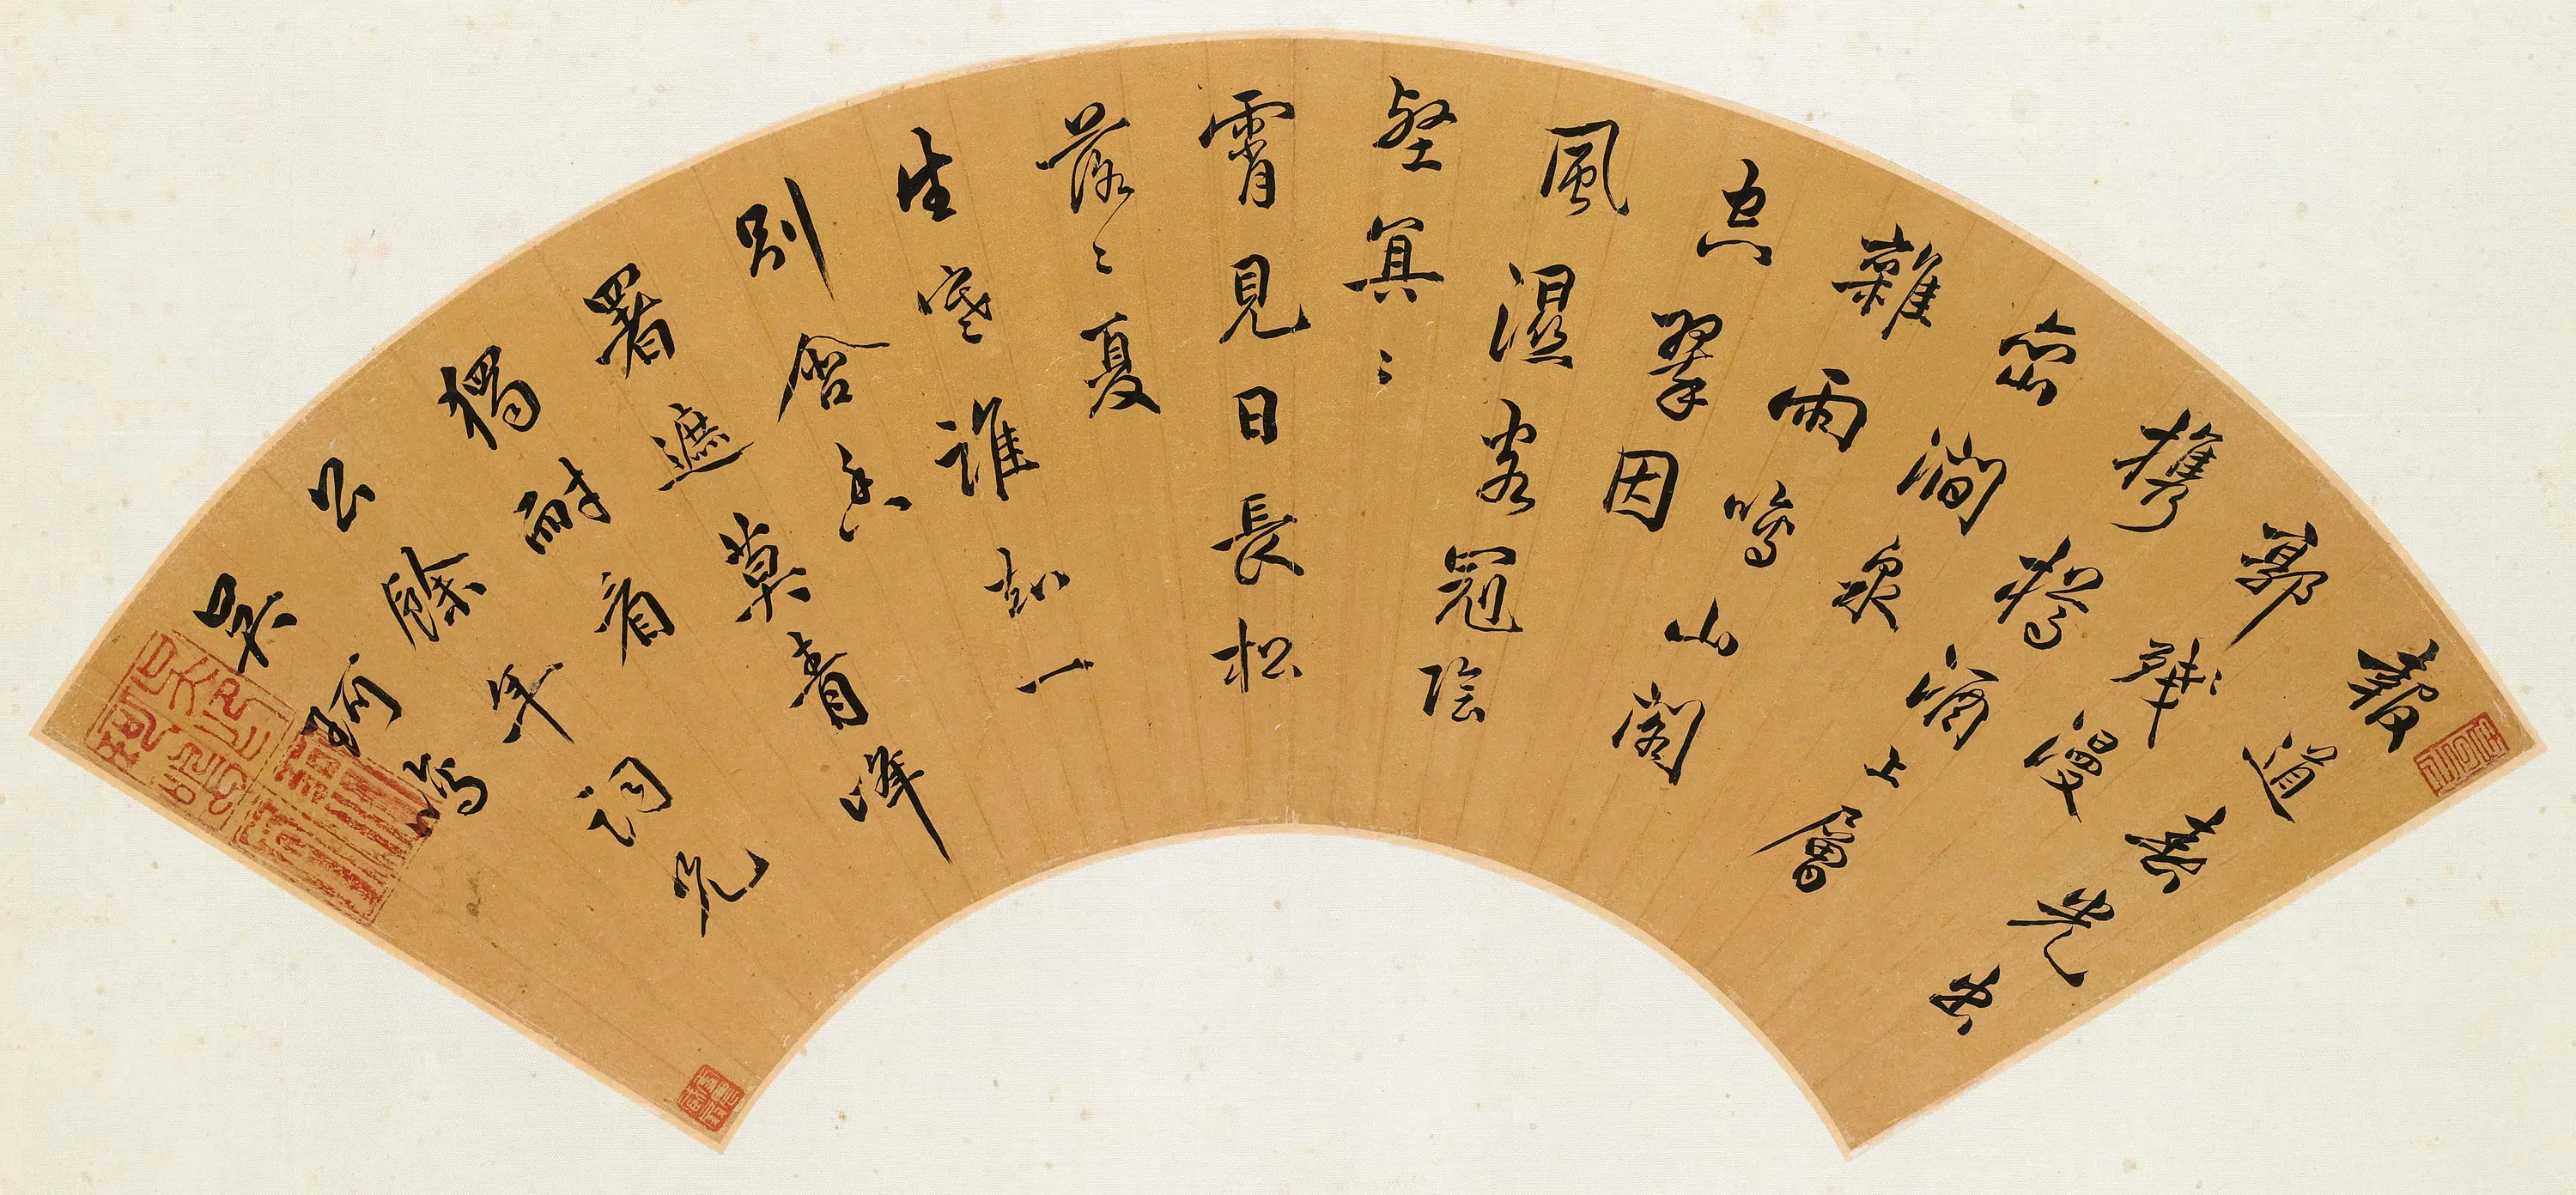 報道春光出
郭殘漫
攜樽酒上層
巒澗泉
雜雨鳴山閣
空翠因
風濕客冠陰
壑冥冥
霄見日長松
落落夏
生寒誰知一
別含香
署遮莫青峰
獨耐看
公餘年詞兄
吳珂寫